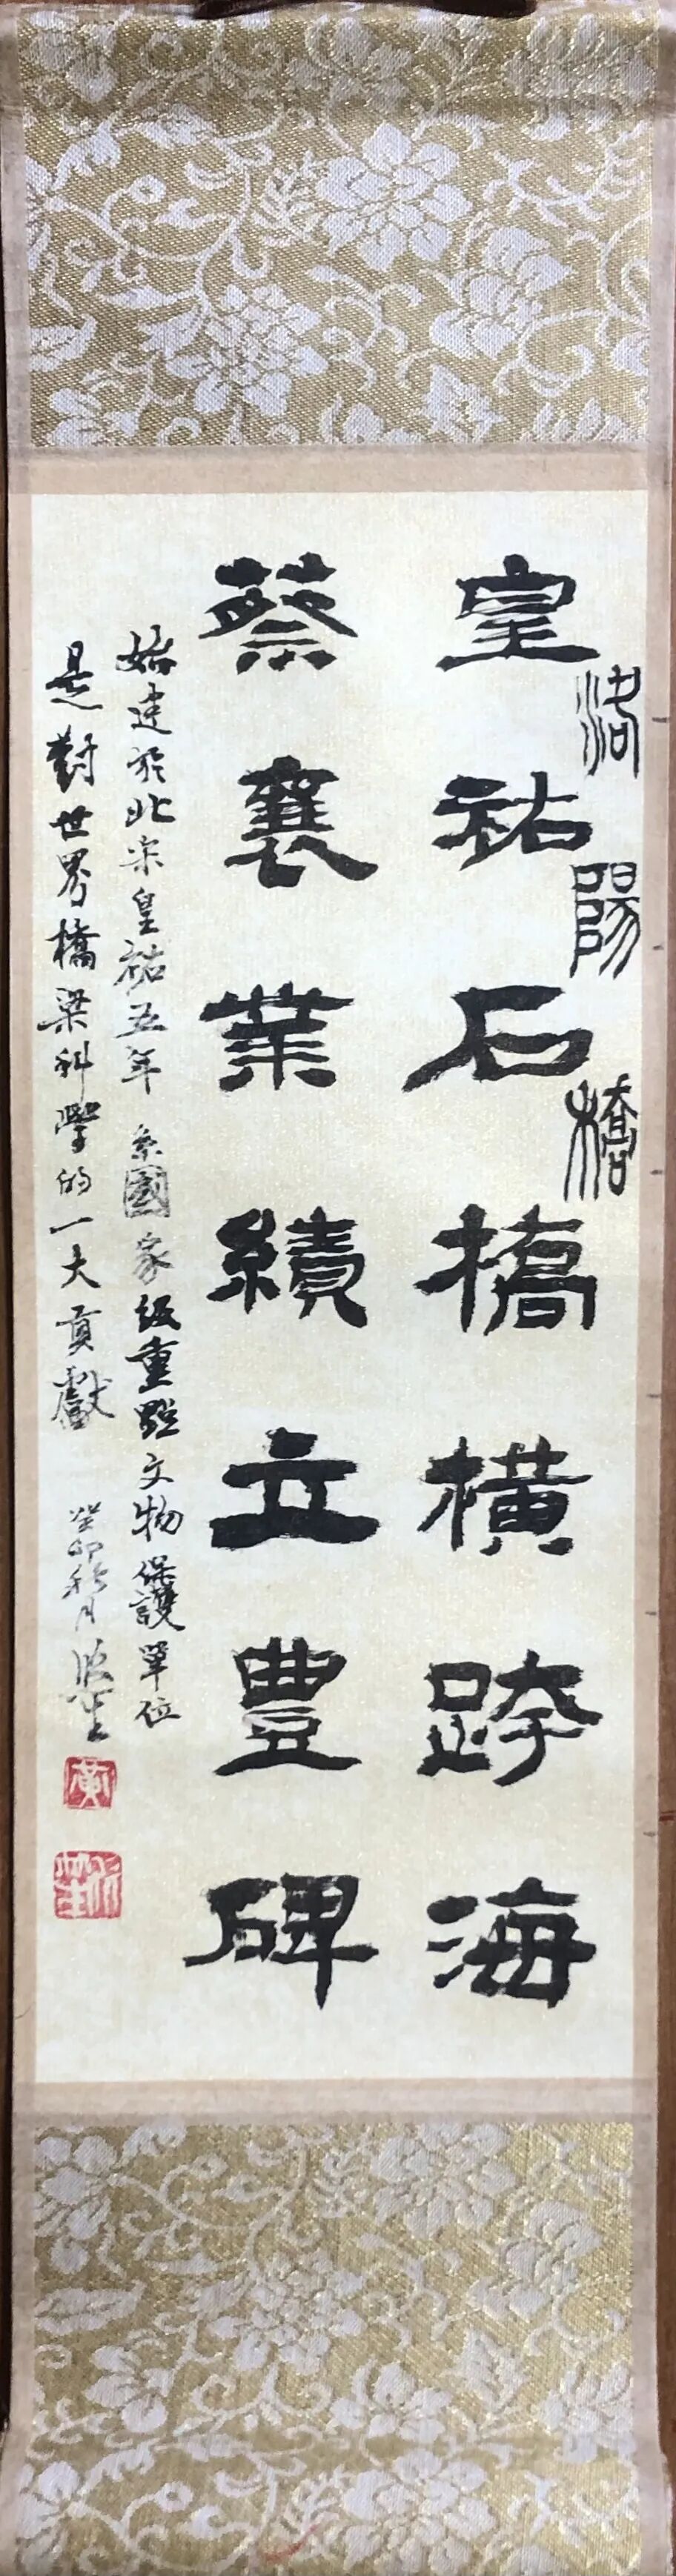 洛陽橋
皇祐石橋橫跨海
蔡襄業績立豊碑
始建於北宋皇祐五年 系國家級重點文物保護單位
是對世界橋梁科學的一大貢獻 癸卯秋月
黃